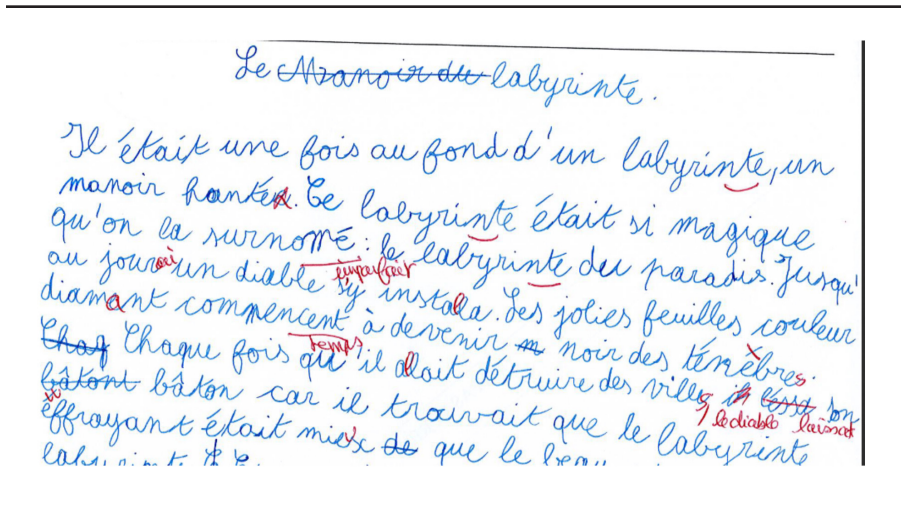 Le Manoir du labyrinte.
Il était une fois au fond d'un labyrinte, un
manoir hanté. Ce labyrinte était si magique
qu'on la surnomé : le labyrinte du paradis. Jusqu'
imparfait
au jour où un diable s'y installa. Les jolies feuilles couleur
diamant commencent à devenir noir des ténèbres.
temps
Chaque fois qu'il allait détruire des villes, son
le diable laissait
bâtont bâton car il trouvait que le labyrinte
effrayant était mieux de que le beau
labyrinte